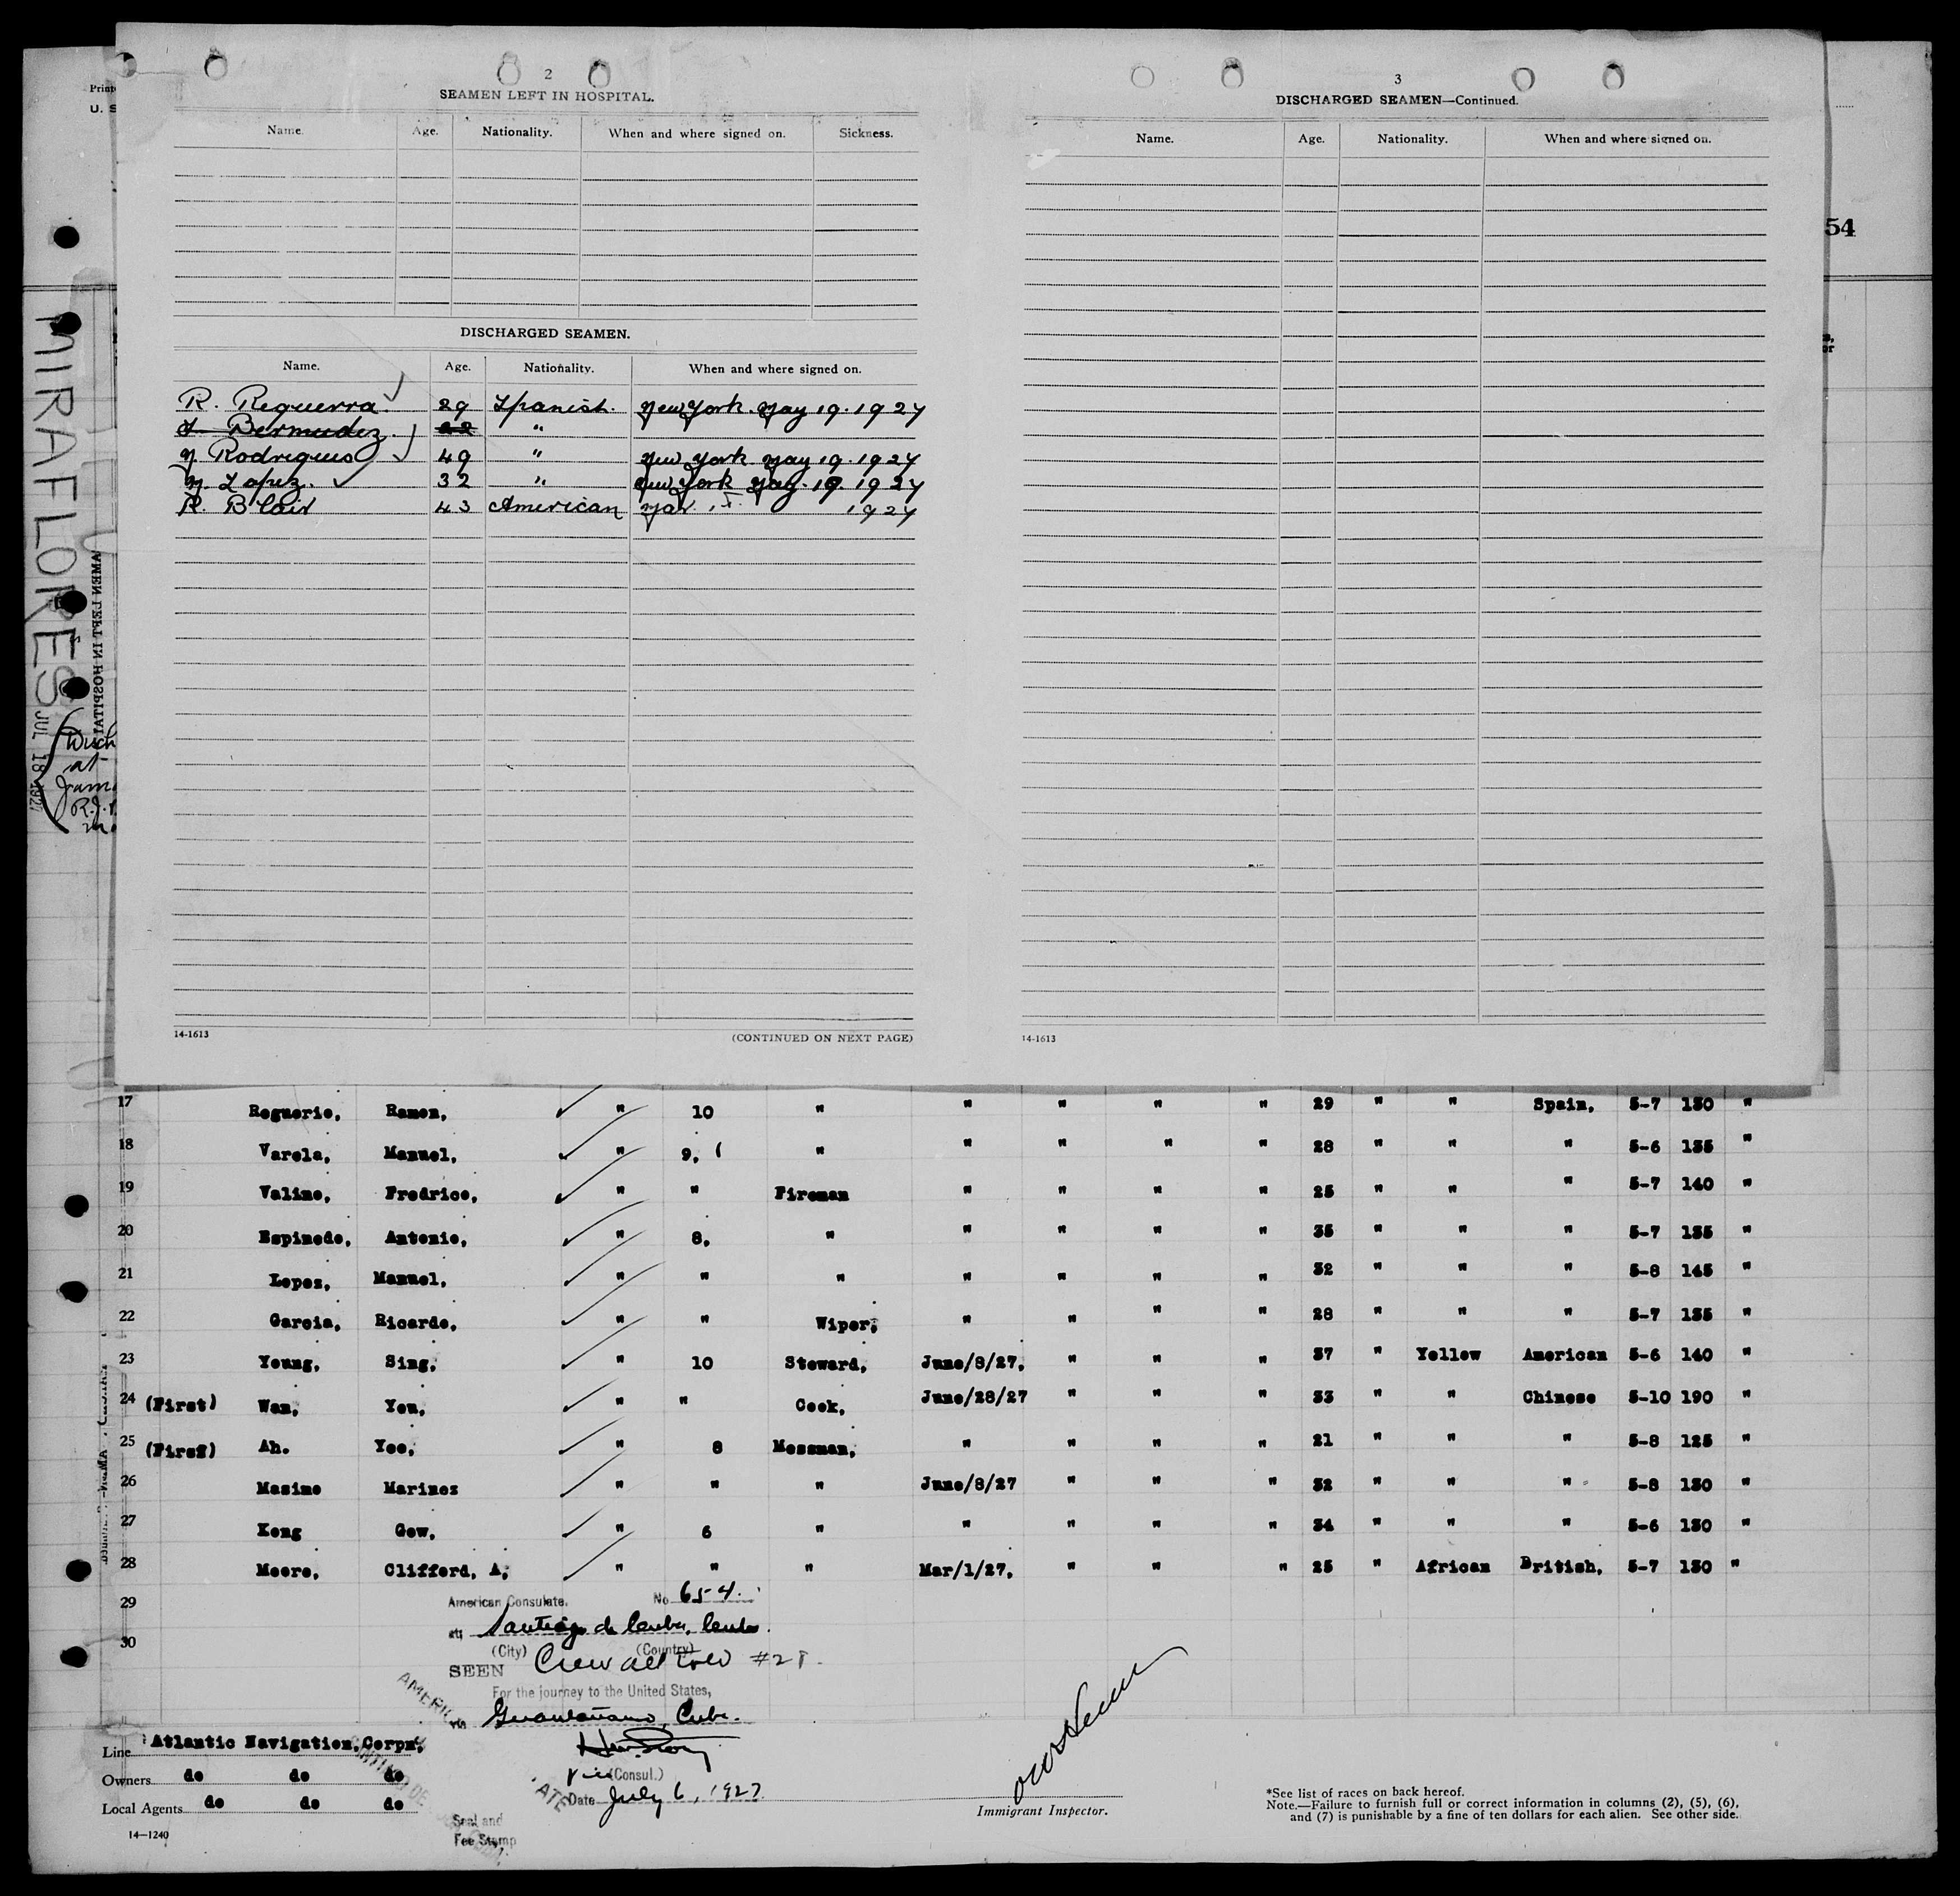 2
SEAMEN LEFT IN HOSPITAL.
Name. Age. Nationality. When and where signed on. Sickness.
DISCHARGED SEAMEN.
Name. Age. Nationality. When and where signed on.
R. Reguerra. 29 Spanish. New York. May 19. 1927
Bermudez. 22 "
M. Rodrigues 49 " New York May 19. 1927
M. Lopez. 32 " New York May. 19. 1927
R. Blair 43 American Mar. 1927
14-1613 (CONTINUED ON NEXT PAGE)
3
DISCHARGED SEAMEN—Continued.
Name. Age. Nationality. When and where signed on.
14-1613
54
Printe
U. S
MIRAFLORES
JUL 18 1927
AMEN LEFT IN HOSPITAL
at
17 Reguerio, Ramon, " 10 " " " " " 29 " " Spain, 5-7 130 "
18 Varela, Manuel, " 9, " " " " " 28 " " " 5-6 135 "
19 Valino, Fredrico, " " Fireman " " " " 25 " " " 5-7 140 "
20 Espinedo, Antonio, " 8, " " " " " 35 " " " 5-7 135 "
21 Lopez, Manuel, " " " " " " " 32 " " " 5-8 145 "
22 Garcia, Ricardo, " " Wiper, " " " " 28 " " " 5-7 135 "
23 Young, Sing, " 10 Steward, June/8/27, " " " 37 " Yellow American 5-6 140 "
24 (First) Wan, You, " " Cook, June/28/27 " " " 33 " " Chinese 5-10 190 "
25 (First) Ah. Yee, " 8 Messman, " " " " 21 " " " 5-8 125 "
26 Masino Marinez " " " June/8/27 " " " 32 " " " 5-8 130 "
27 Kong Gow, " 6 " " " " " 34 " " " 5-6 130 "
28 Moore, Clifford, A, " " " Mar/1/27, " " " 25 " African British, 5-7 130 "
29
30
American Consulate. No 654.
at Santiago de Cuba, Cuba.
(City) (Country)
SEEN Crew all told #28.
For the journey to the United States,
via Guantanamo, Cuba.
Vice (Consul.)
Date July 6, 1927
Seal and
Fee Stamp
Line Atlantic Navigation, Corpn,
Owners do do do
Local Agents do do do
14—1240
Immigrant Inspector.
*See list of races on back hereof.
Note.—Failure to furnish full or correct information in columns (2), (5), (6),
and (7) is punishable by a fine of ten dollars for each alien. See other side.